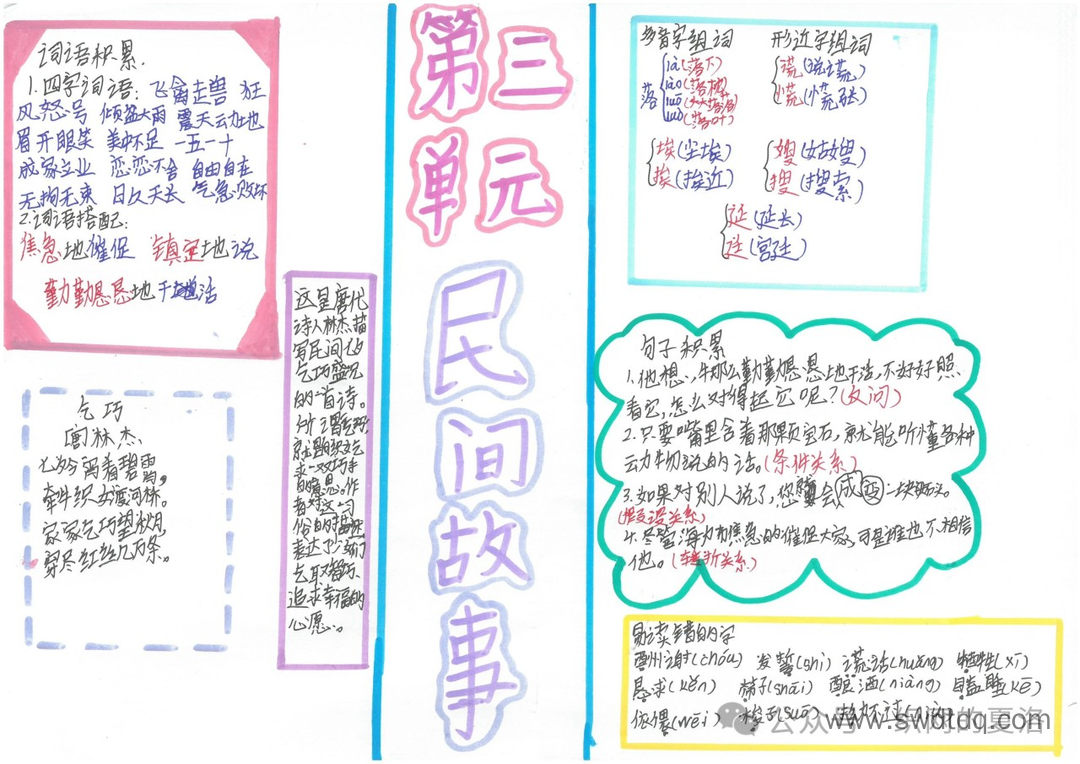 词语积累.
1.四字词语:飞禽走兽 狂
风怒号 倾盆大雨 震天动地
眉开眼笑 美中不足 一五一十
成家立业 恋恋不舍 自由自在
无拘无束 日久天长 气急败坏
2.词语搭配:
焦急地催促 镇定地说
勤勤恳恳地干活
乞巧
唐林杰
七夕今宵看碧霄,
牵牛织女渡河
家家乞巧望秋月,
穿尽红丝几万条。
这是唐代
诗人林杰描
写民间
乞巧盛况
的一首诗。
作
者对这
份的描
表达了少女们
乞取智巧、
追求幸福的
心愿。
第三
单元
民间故事
多音字组词
落
là(落下)
lào(落枕)
luō(大大落落)
luò(落叶)
埃(尘埃)
挨(挨近)
形近字组词
谎(说谎)
慌(慌张)
嫂(姑嫂)
搜(搜索)
延(延长)
廷(宫廷)
句子积累
1.他想,牛那么勤勤恳恳地干活,不好好照
看它,怎么对得起它呢?(反问)
2.只要嘴里含着那颗宝石,就能听懂各种
动物说的话。(条件关系)
3.如果对别人说了,您就会变成一块石头。
(假设关系)
4.尽管海力布焦急的催促大家,可是谁也不相信
他。(转折关系)
易读错的字
酬谢(chóu) 发誓(shì) 谎话(huǎng) 牺牲(xī)
恳求(kěn) 筛子(shāi) 酿酒(niàng) 瞌睡(kē)
依偎(wēi) 梭子(suō)
公众号 的夏洛
www.swdtdq.com